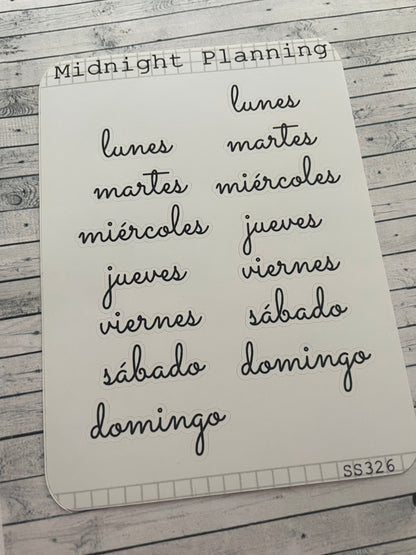 Midnight Planning
lunes
martes
miércoles
jueves
viernes
sábado
domingo
lunes
martes
miércoles
jueves
viernes
sábado
domingo
SS326